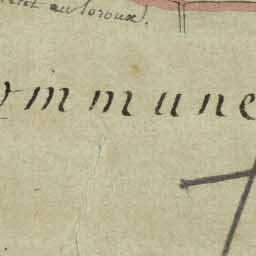 au loroux.
ommune